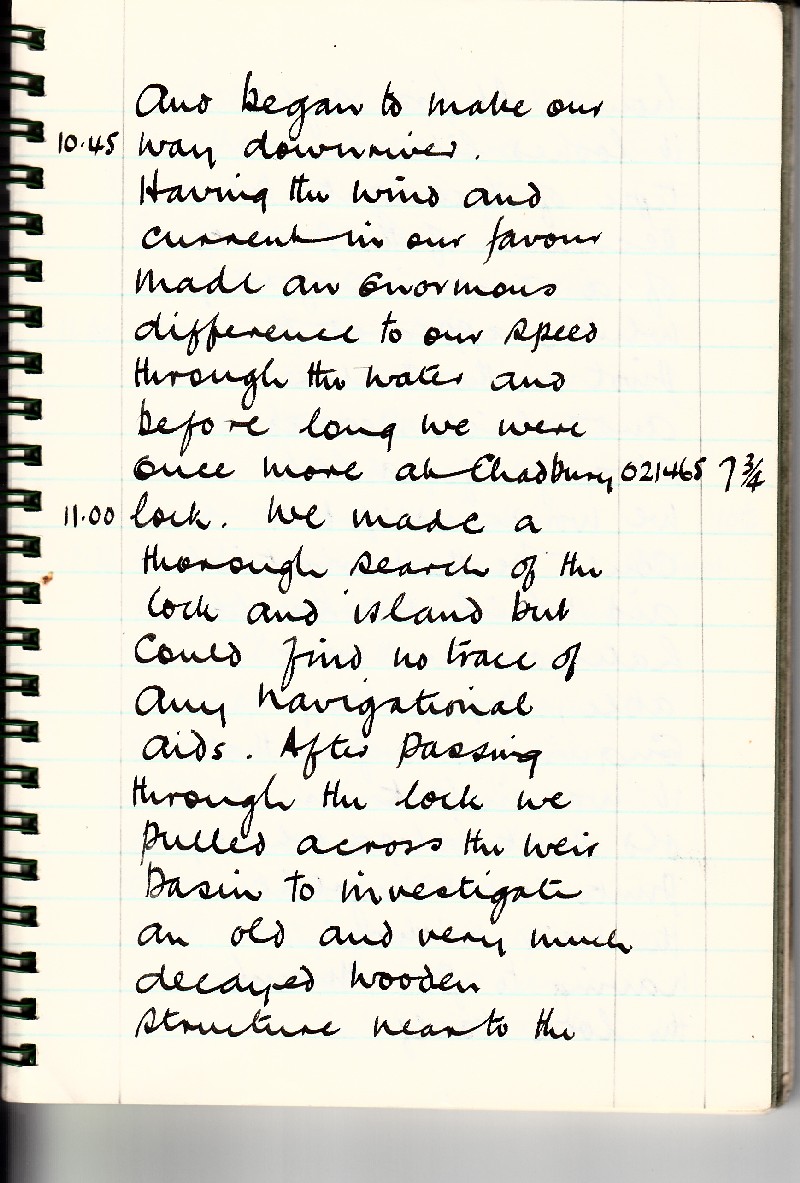 And began to make our
10.45 way downriver.
Having the wind and
current in our favour
made an enormous
difference to our speed
through the water and
before long we were
once more at Chadbury 021465 7 3/4
11.00 lock. We made a
thorough search of the
lock and island but
could find no trace of
any navigational
aids. After passing
through the lock we
pulled across the weir
basin to investigate
an old and very much
decayed wooden
structure near to the